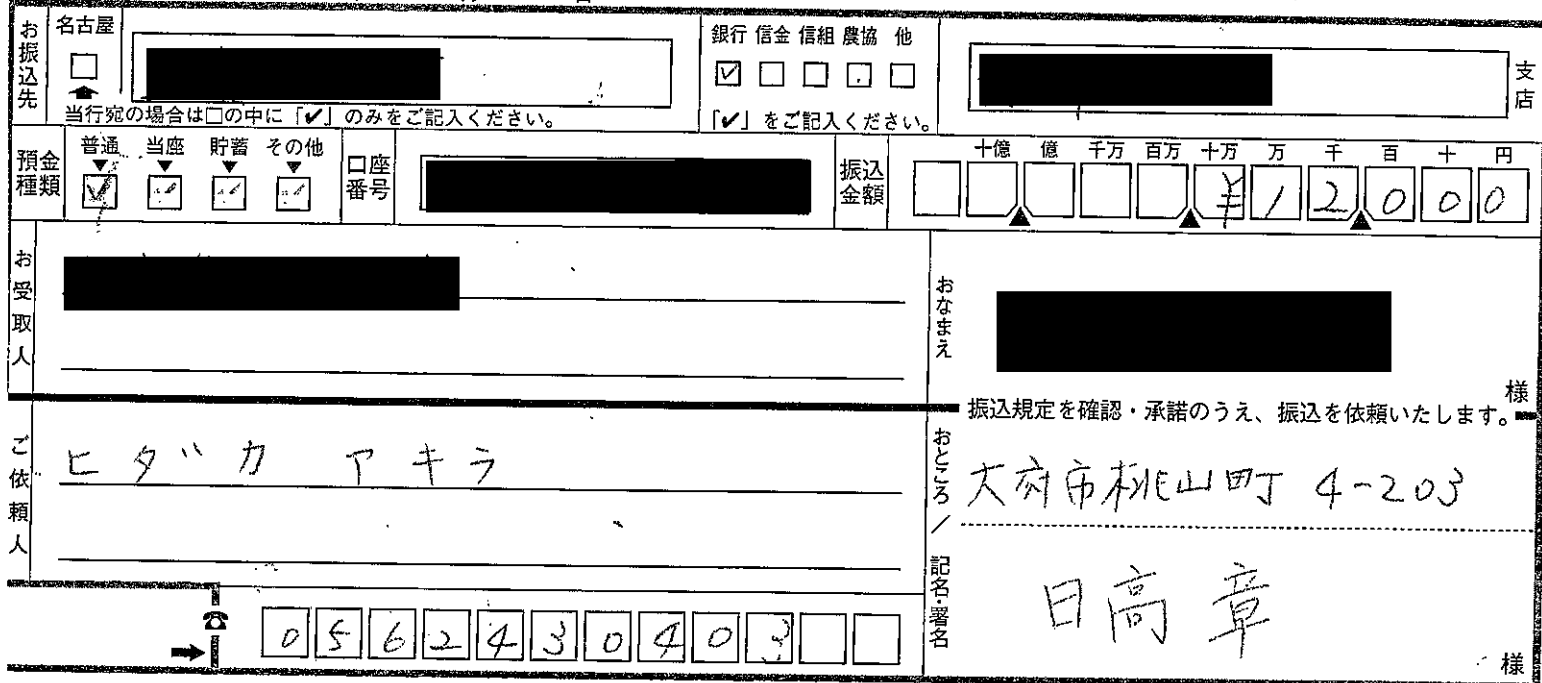 お振込先
名古屋
当行宛の場合は□の中に「✔」のみをご記入ください。
銀行 信金 信組 農協 他
「✔」をご記入ください。
支店
預金種類
普通 当座 貯蓄 その他
口座番号
振込金額
十億 億 千万 百万 十万 万 千 百 十 円
¥12000
お受取人
おなまえ
様
振込規定を確認・承諾のうえ、振込を依頼いたします。
ご依頼人
ヒダカ アキラ
おところ/記名・署名
大府市桃山町 4-203
日高 章
様
0562430403